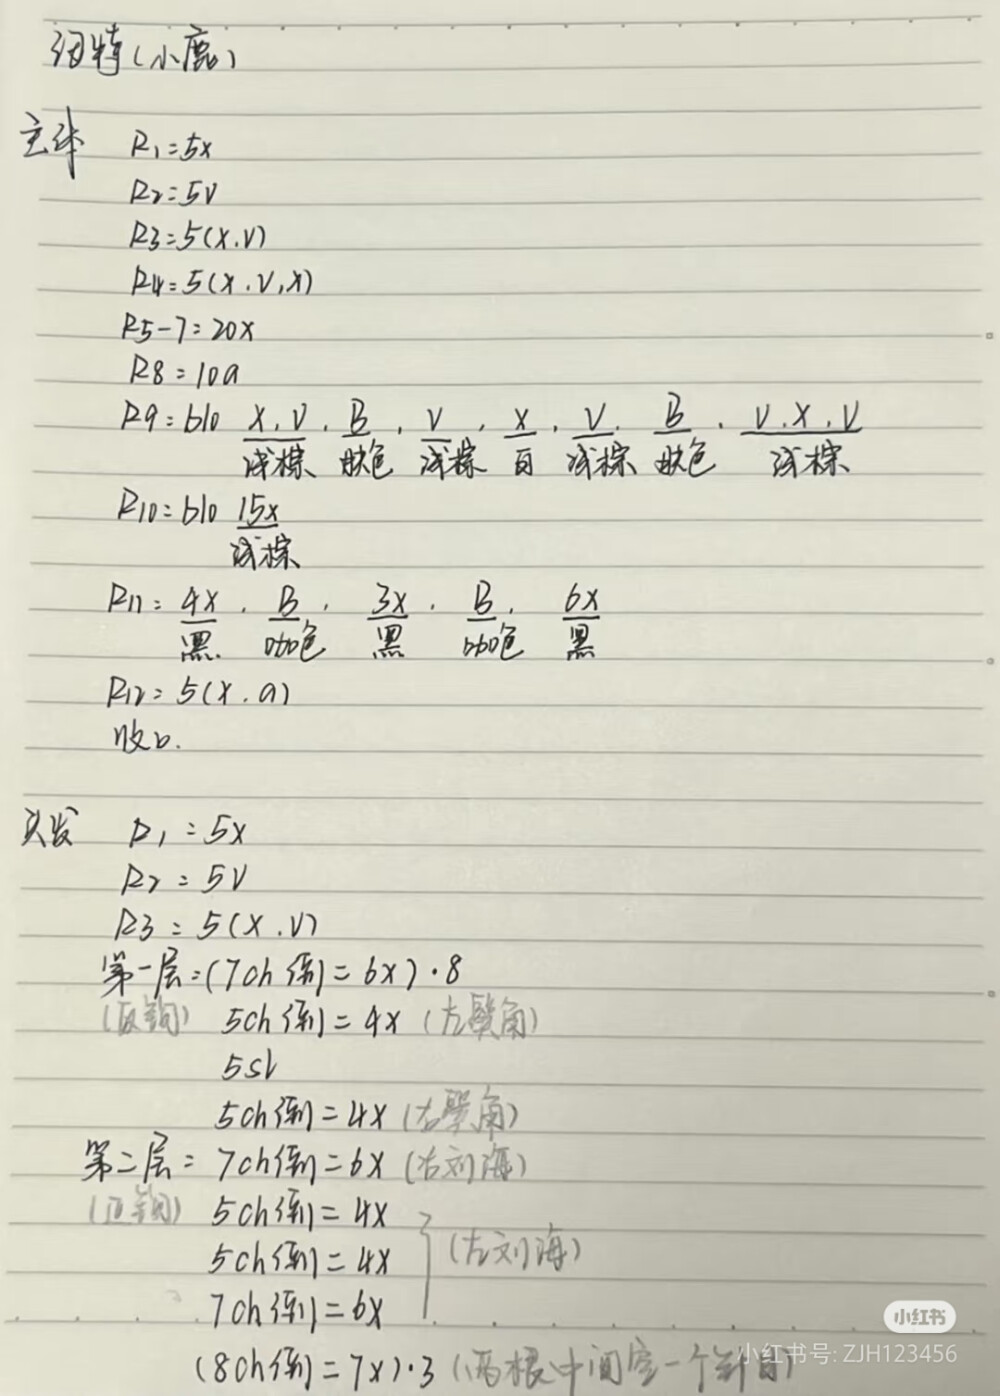 细特(小鹿)
主体 R1=5x
R2=5V
R3=5(x.V)
R4=5(x.V,x)
R5-7=20x
R8=10a
R9=blo x.V . B . V . x . V . B . V.x.V
浅棕 肤色 浅棕 白 浅棕 肤色 浅棕
R10=blo 15x
浅棕
R11=4x . B . 3x . B . 6x
黑 咖色 黑 咖色 黑
R12=5(x.a)
收b.
头发 R1=5x
R2=5V
R3=5(x.V)
第一层=(7ch倒=6x)·8
(反钩) 5ch倒=4x (左鬓角)
5sl
5ch倒=4x (右鬓角)
第二层=7ch倒=6x (右刘海)
(正钩) 5ch倒=4x
5ch倒=4x (左刘海)
7ch倒=6x
(8ch倒=7x)·3 (两根中间空一个针目)
小红书
小红书号: ZJH123456